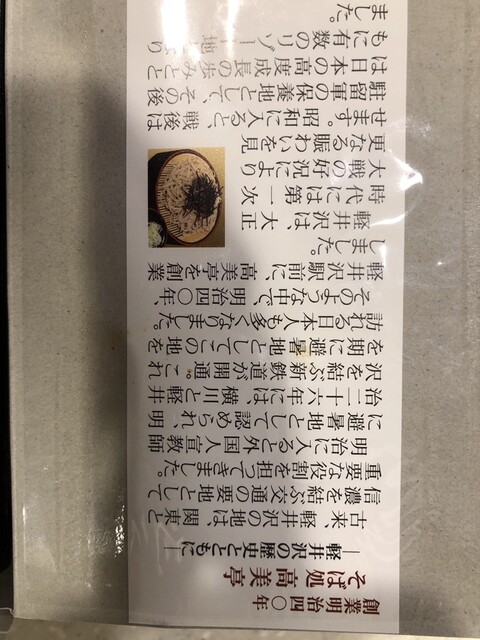 創業明治四〇年
そば処 高美亭
―軽井沢の歴史とともに―
古来、軽井沢の地は、関東と
信濃を結ぶ交通の要の地として
重要な役割を担ってきました。
明治に入ると外国人宣教師
に避暑地として認められ、明
治二十六年には、横川と軽井
沢を結ぶ新鉄道が開通。これ
を期に避暑地としてこの地を
訪れる日本人も多くなりました。
そのような中で、明治四〇年、
軽井沢駅前に高美亭を創業
しました。
軽井沢は、大正
時代には第一次
大戦の好況により
更なる賑わいを見
せます。昭和に入ると、戦後は
駐留軍の保養地として、その後
は日本の高度成長の歩みとと
もに有数のリゾート地となり
ました。